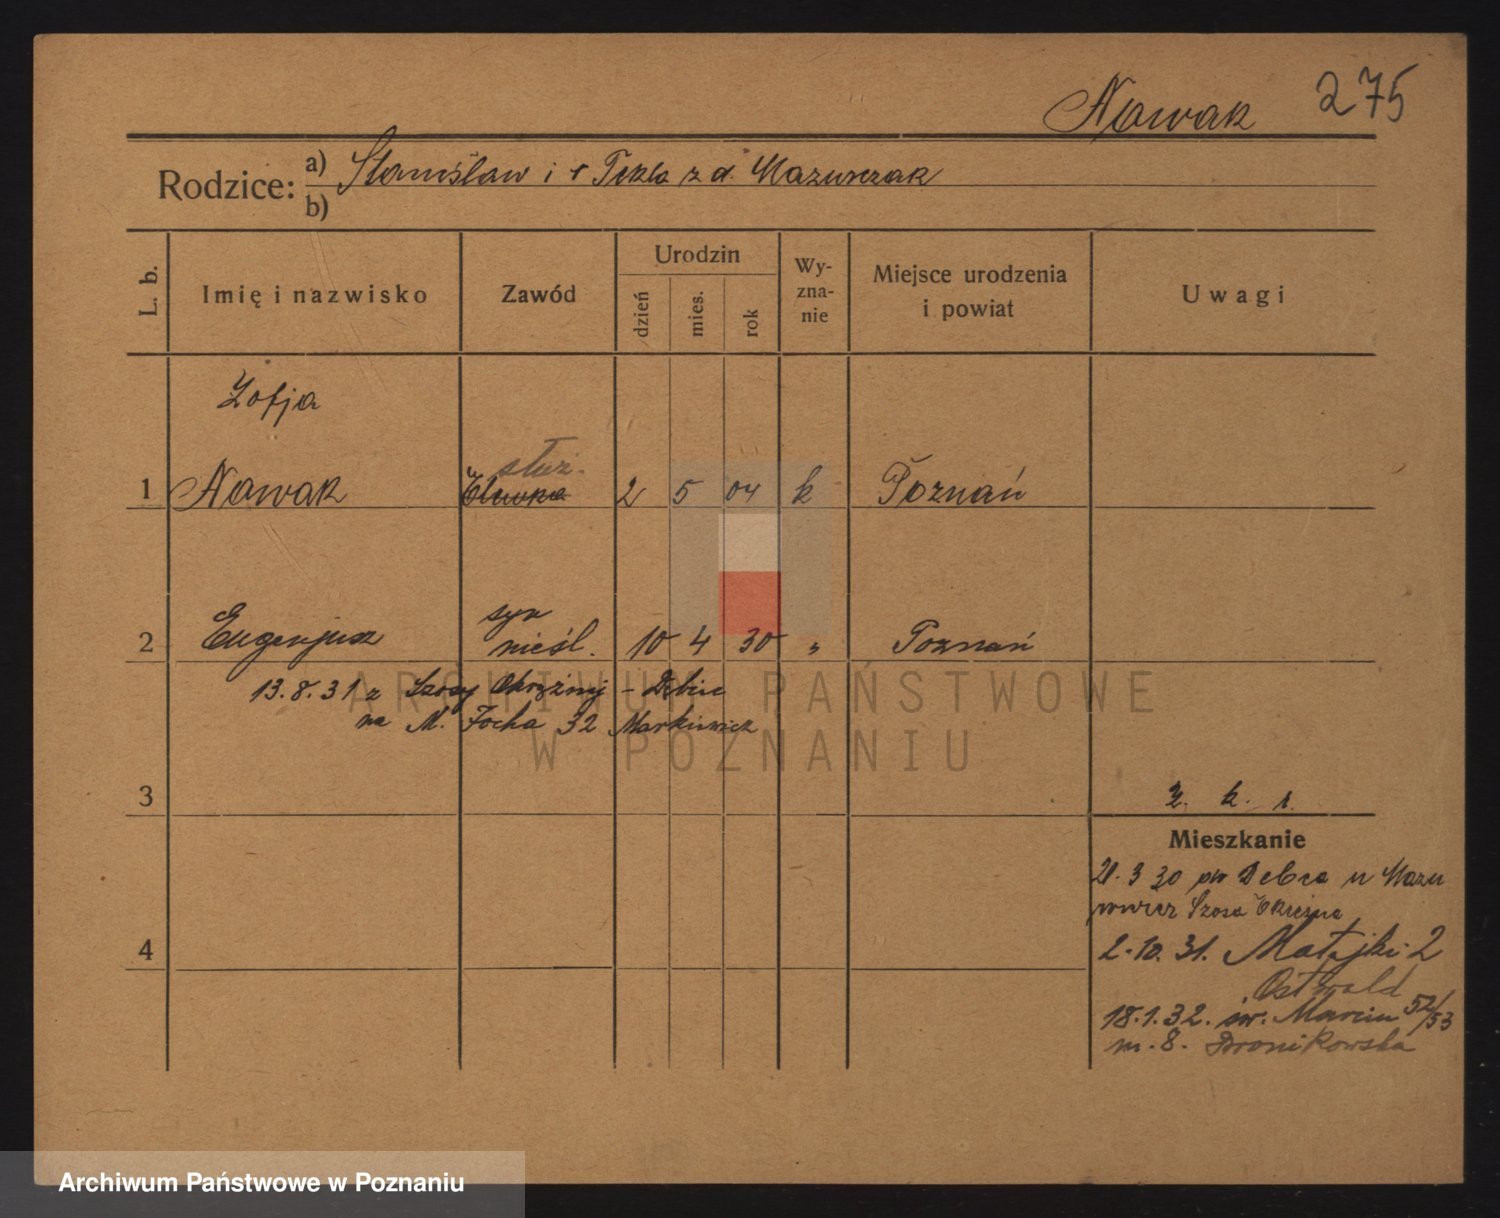 Nowak 275
Rodzice: a) Stanisław i † Tekla z d. Mazurczak
b)
L. b. Imię i nazwisko Zawód Urodzin dzień mies. rok Wyznanie Miejsce urodzenia i powiat Uwagi
Zofja
służ.
1 Nowak 2 5 04 k Poznań
syn
2 Eugenjusz nieśl. 10 4 30 " Poznań
13.8.31 z Szosy Okrężnej - Dębiec
na M. Focha 32 Markiewicz
ARCHIWUM PAŃSTWOWE
W POZNANIU
3
k. r.
Mieszkanie
21.3 30 Szosa Okrężna
4
2.10.31. Matejki 2
Ostwald
18.1.32. św. Marcin 52/53
m. 8. Bronikowska
Archiwum Państwowe w Poznaniu